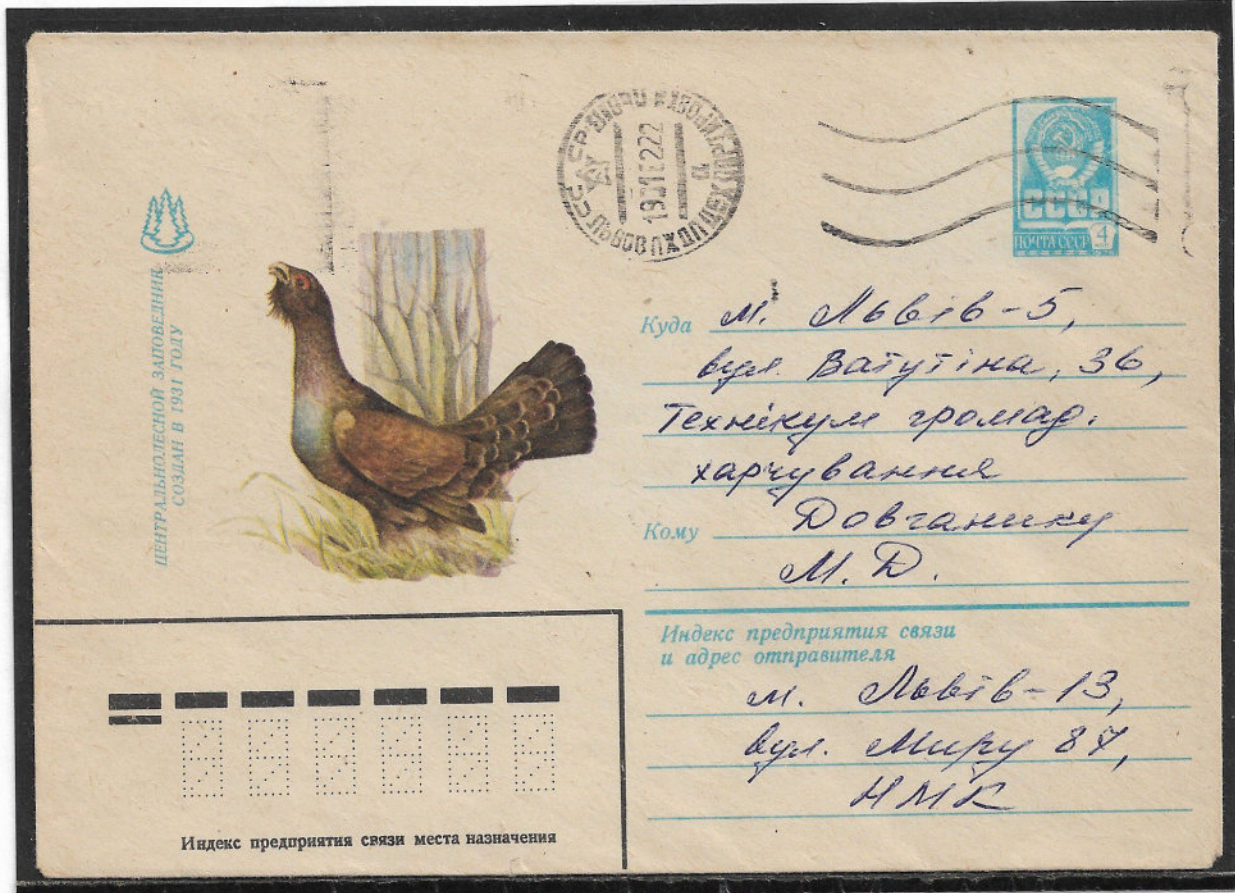 ЦЕНТРАЛЬНОЛЕСНОЙ ЗАПОВЕДНИК
СОЗДАН В 1931 ГОДУ
СССР
ПОЧТА СССР 4
Куда м. Львів-5,
вул. Ватутіна, 36,
Технікум громад.
харчування
Кому Довганику
М. Д.
Индекс предприятия связи
и адрес отправителя
м. Львів-13,
вул. Миру 87,
НМК
Индекс предприятия связи места назначения